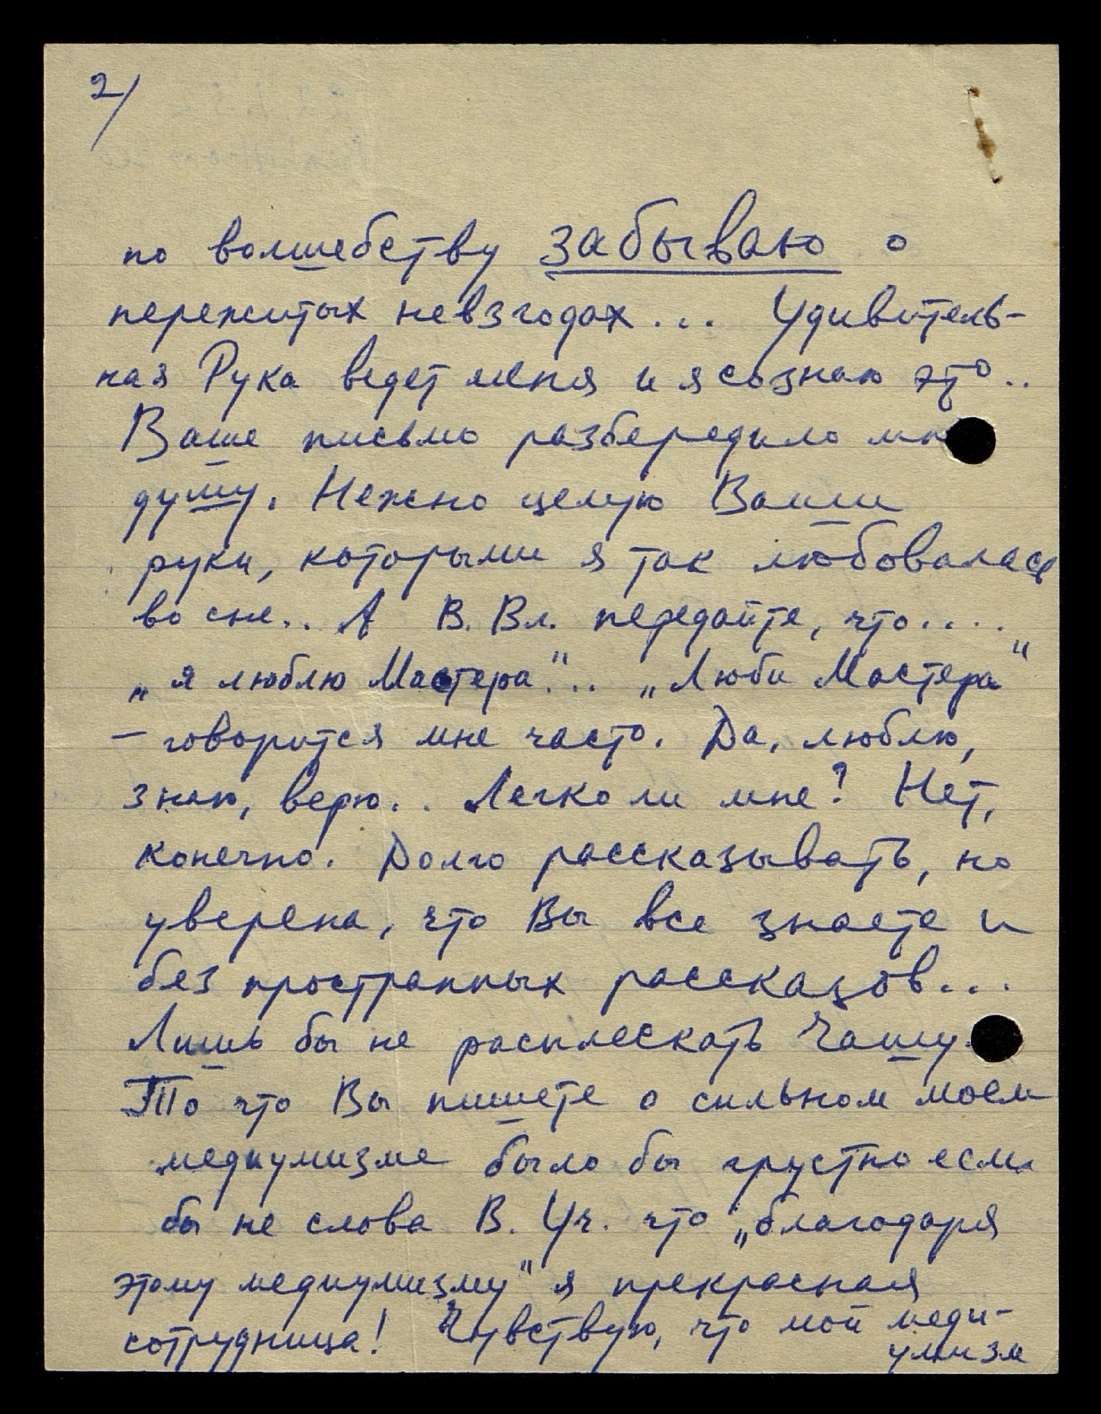 2/
по волшебству забываю о
пережитых невзгодах... Удивитель-
ная Рука ведет меня и я сознаю это..
Ваше письмо разбередило мн
душу. Нежно целую Ваши
руки, которыми я так любовалась
во сне.. А В. Вл. передайте, что....
„я люблю Мастера"... „Люби Мастера"
– говорится мне часто. Да, люблю,
знаю, верю.. Легко ли мне? Нет,
конечно. Долго рассказывать, но
уверена, что Вы все знаете и
без пространных рассказов...
Лишь бы не расплескать Чашу.
То что Вы пишете о сильном моем
медиумизме было бы грустно если
бы не слова В. Уч. что „благодаря
этому медиумизму" я прекрасная
сотрудница! Чувствую, что мой меди-
умизм